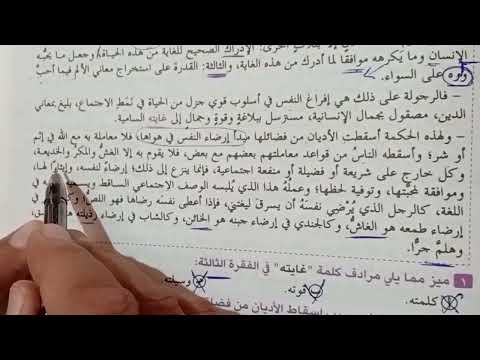 الإدراك الصحيح للغاية من هذه الحياة، وجعل ما يحبه
الإنسان وما يكرهه موافقا لما أدرك من هذه الغاية، والثالثة: القدرة على استخراج معاني الألم فيما أحب
وكره على السواء.
– فالرجولة على ذلك هي إفراغ النفس في أسلوب قوي جزل من الحياة في نمط الاجتماع، بليغ بمعاني
الدين، مصقول بجمال الإنسانية، مسترسل ببلاغة وقوة وجمال إلى غايته السامية.
– ولهذه الحكمة أسقطت الأديان من فضائلها مبدأ إرضاء النفس في هواها، فلا معاملة به مع الله في إثم
أو شر؛ وأسقطه الناس من قواعد معاملتهم بعضهم مع بعض، فلا يقوم به إلا الغش والمكر والخديعة،
وكل خارج على شريعة أو فضيلة أو منفعة اجتماعية، فإنما ينزع إلى ذلك؛ إرضاء لنفسه، وإيثارا لها،
وموافقة لمحبتها، وتوفية لحظها؛ وعمله هذا الذي يلبسه الوصف الاجتماعي الساقط في
اللغة، كالرجل الذي يرضي نفسه أن يسرق ليغتني، فإذا أعطى نفسه رضاها فهو اللص؛ في
إرضاء طمعه هو الغاش، وكالجندي في إرضاء جبنه هو الخائن، وكالشاب في إرضاء رذيلته
وهلم جرا.
١ ميز مما يلي مرادف كلمة "غايته" في الفقرة الثالثة:
أ كلمته. ب قوته. وسيلته.
إسقاط الأديان من